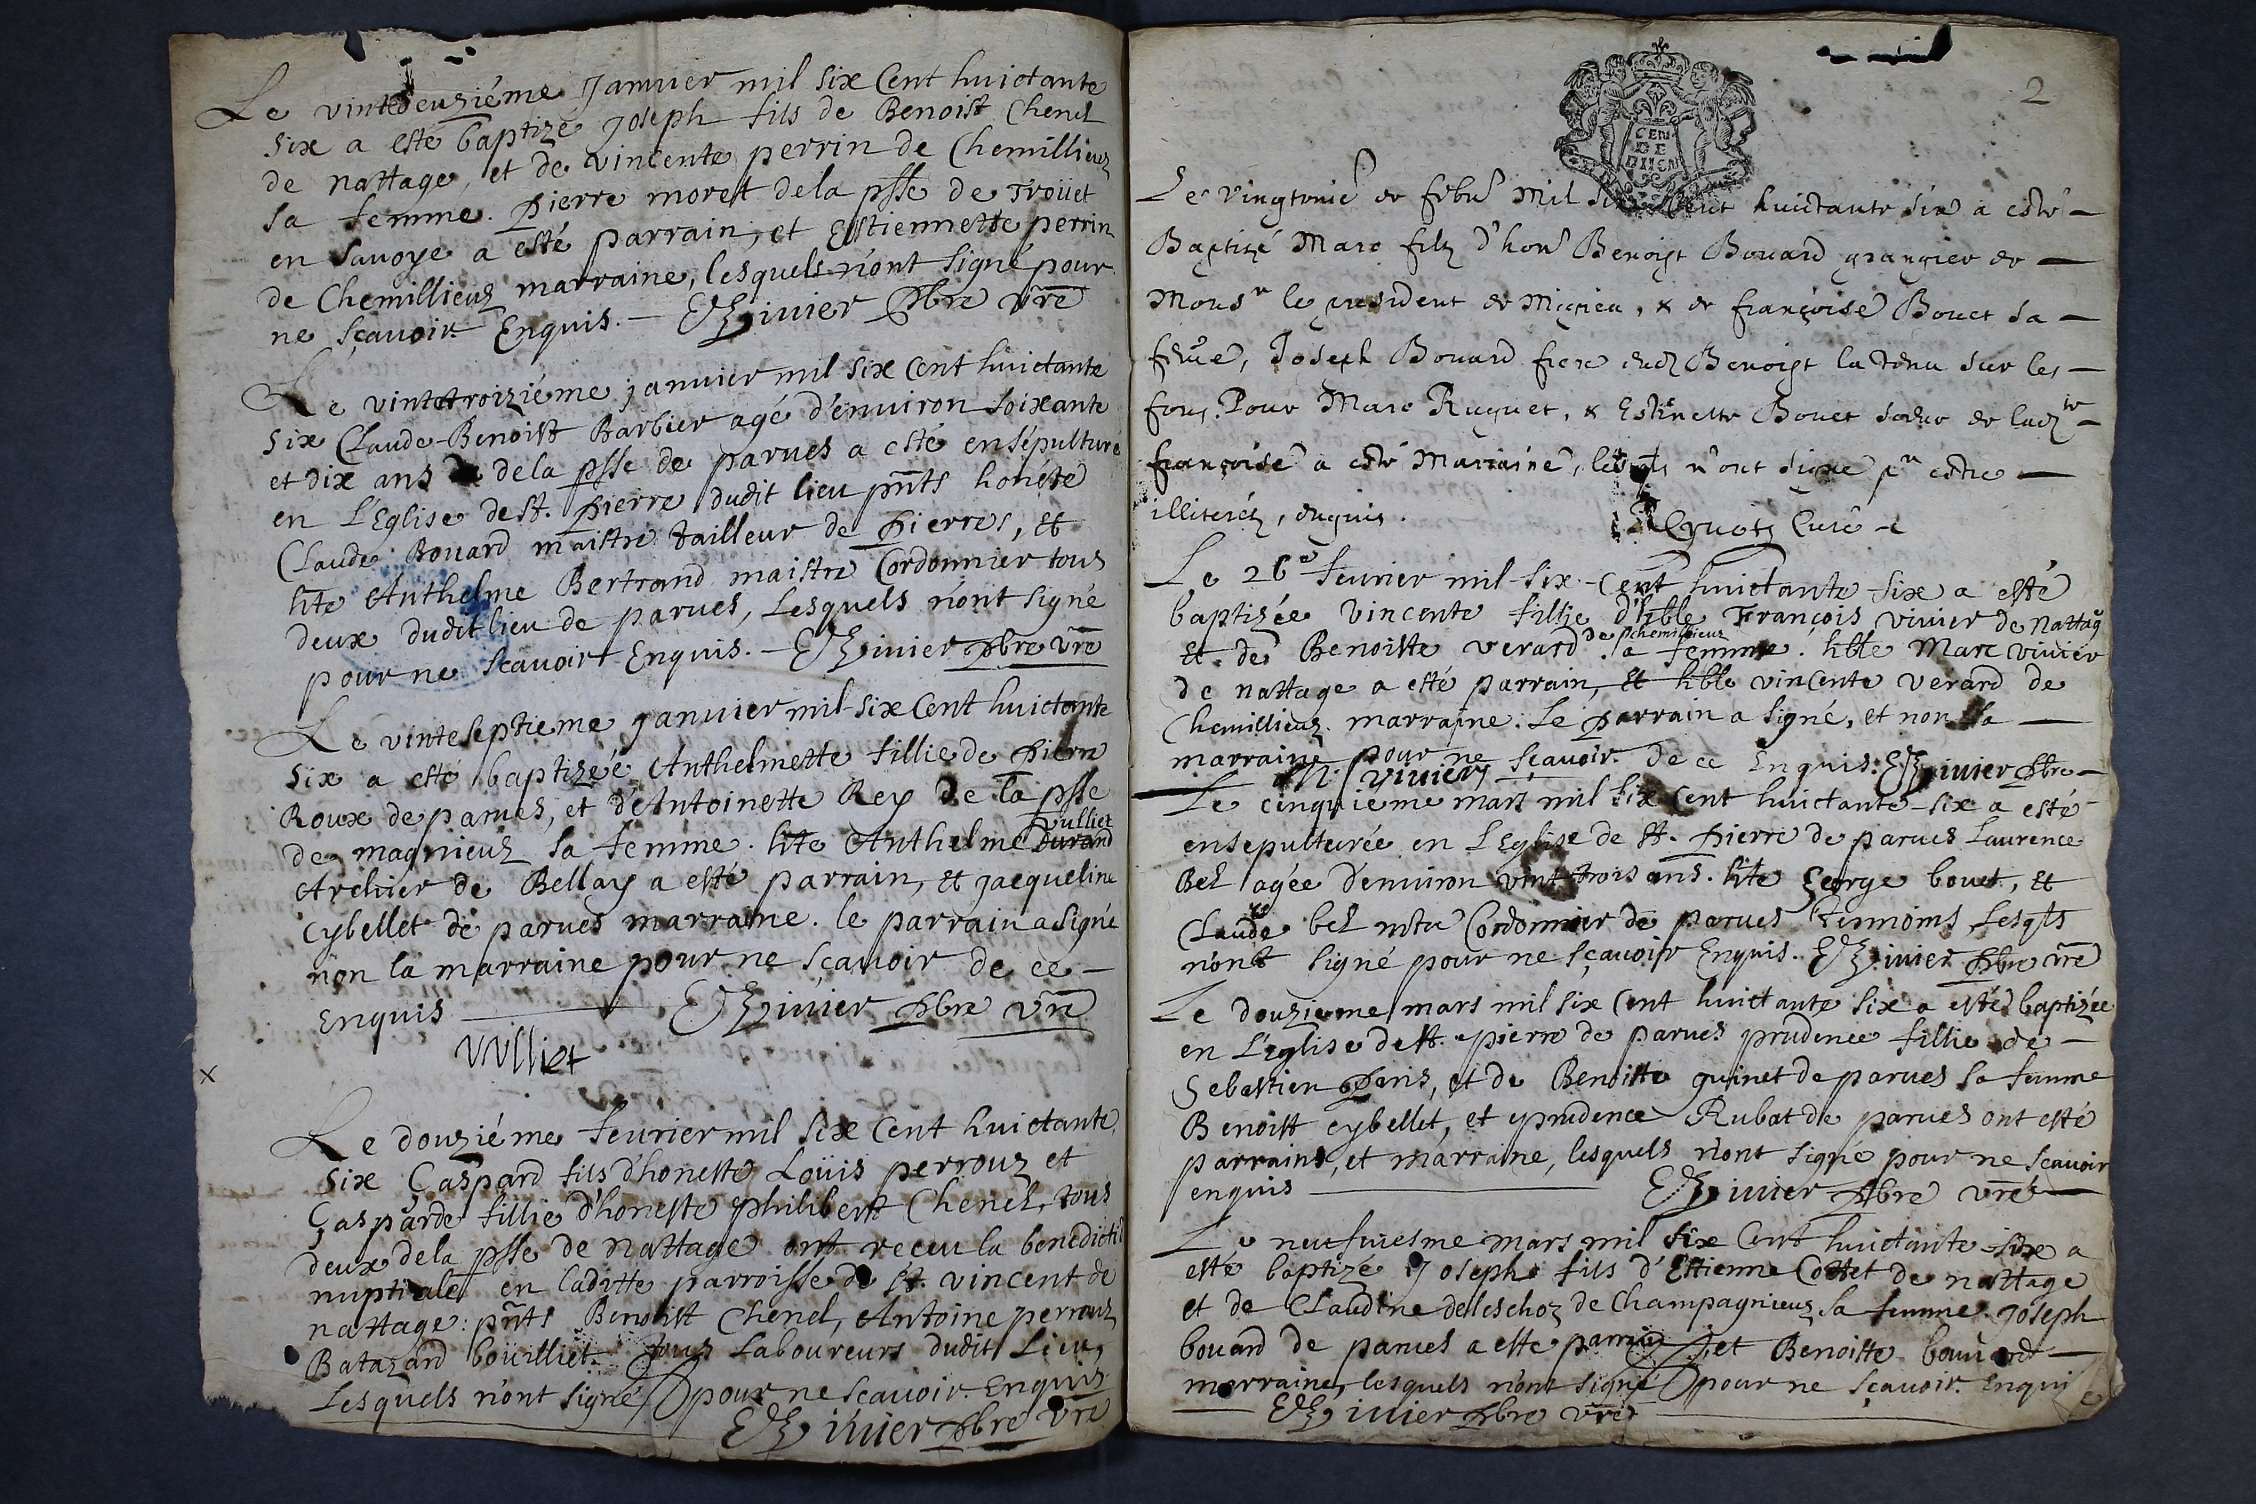 Le vintedeuziéme Janvier mil six Cent huictante
six a esté baptizé Joseph fils de Benoist Chenel
de nattage, et de vincente perrin de Chemillieuz
sa femme. Pierre moret dela psse de Troüet
en Savoye a esté parrain, et Estiennette perrin
de Chemillieuz marraine, lesquels n'ont signé pour
ne sçavoir Enquis. — Vivier Pbre vre
Le vintetroiziéme janvier mil six Cent huictante
six Claude-Benoist Barbier agé d'environ soixante
et dix ans dela psse de parves a esté ensépulturé
en L'Eglise de St. Pierre dudit lieu pnts honéte
Claude Bouard maistre tailleur de Pierres, et
hte Anthelme Bertrand maistre Cordonnier tous
deux dudit lieu de parves, Lesquels n'ont signé
pour ne scavoir Enquis. — Vivier Pbre vre
Le vinteseptieme Janvier mil-six Cent huictante
six a esté baptizéé Anthelmette fillie de Pierre
Roux de parves, et d'Antoinette Rey de la psse
Vulliet
de magnieuz sa femme. hte Anthelme Durand
Archier de Bellay a esté parrain, et Jacqueline
Cybellet de parves marraine. le parrain a signé
non la marraine pour ne sçavoir de ce —
Enquis — Vivier Pbre vre
Vulliet
x
Le douziéme fevrier mil six Cent huictante
six Gaspard fils d'honeste Loüis perrouz et
Gasparde fillie d'honeste philibert Chenel, tous
deux dela psse de Nattage ont receu la benedicti
nuptiale en laditte parroisse de St. vincent de
nattage: pnts Benoist Chenel, Antoine perrouz
Batazard boüilliet. Tous Laboureurs dudit Lieu,
Lesquels n'ont signé pour ne scavoir Enquis
Vivier Pbre vre
2
GEN
DE
DIION
Le Vingt de Mil Cent huictante six a esté —
Baptizé Marc filz d'hon Benoist Bouard grangier de —
Monsr le president de Migieu, & de françoise Bouet sa —
feme, Joseph Bouard frere dud Benoist la tenu sur les —
fons Pour Marc Ruguet, & Bouet soeur de lad —
françoise a esté Marraine, n'ont signe pr estre —
illiterez, enquis. Curé
Le 26e fevrier mil-six-Cent huictante-six a esté
baptizée vincente fillie d'hble François vivier de nattag
de chemillieuz
et de Benoitte verard sa femme. hble Marc vivier
de nattage a esté parrain, et hble vincente verard de
Chemillieuz marraine. Le parrain a signé, et non la —
marraine pour ne sçavoir de ce Enquis. Vivier Pbre —
M. Vivier
Le cinquieme mars mil six Cent huictante-six a esté
ensepulturée en L'Eglise de St. Pierre de parves Laurence
Bel agée d'environ vint-trois ans. hte George bouet, et
Claude bel mtre Cordonnier de parves tesmoins Lesqls
n'ont signé pour ne sçavoir Enquis. Vivier Pbre vre
Le douzieme mars mil six Cent huictante six a esté baptizée
en L'Eglise de St. pierre de parves prudence fillie de —
Sebastien Paris, et de Benoitte guinet de parves sa femme
Benoist cybellet, et prudence Rubat de parves ont esté
parrains, et marraine, lesquels n'ont signé pour ne scavoir
enquis — Vivier Pbre vre
Le neufviesme mars mil six Cent huictante-six a
esté baptizé Joseph fils d'Estienne Cottet de nattage
et de Claudine delleschoz de Champagnieuz sa femme Joseph
bouard de parves a esté parrain, et Benoitte bouard —
marraine, lesquels n'ont signé pour ne sçavoir Enqui
Vivier Pbre vre